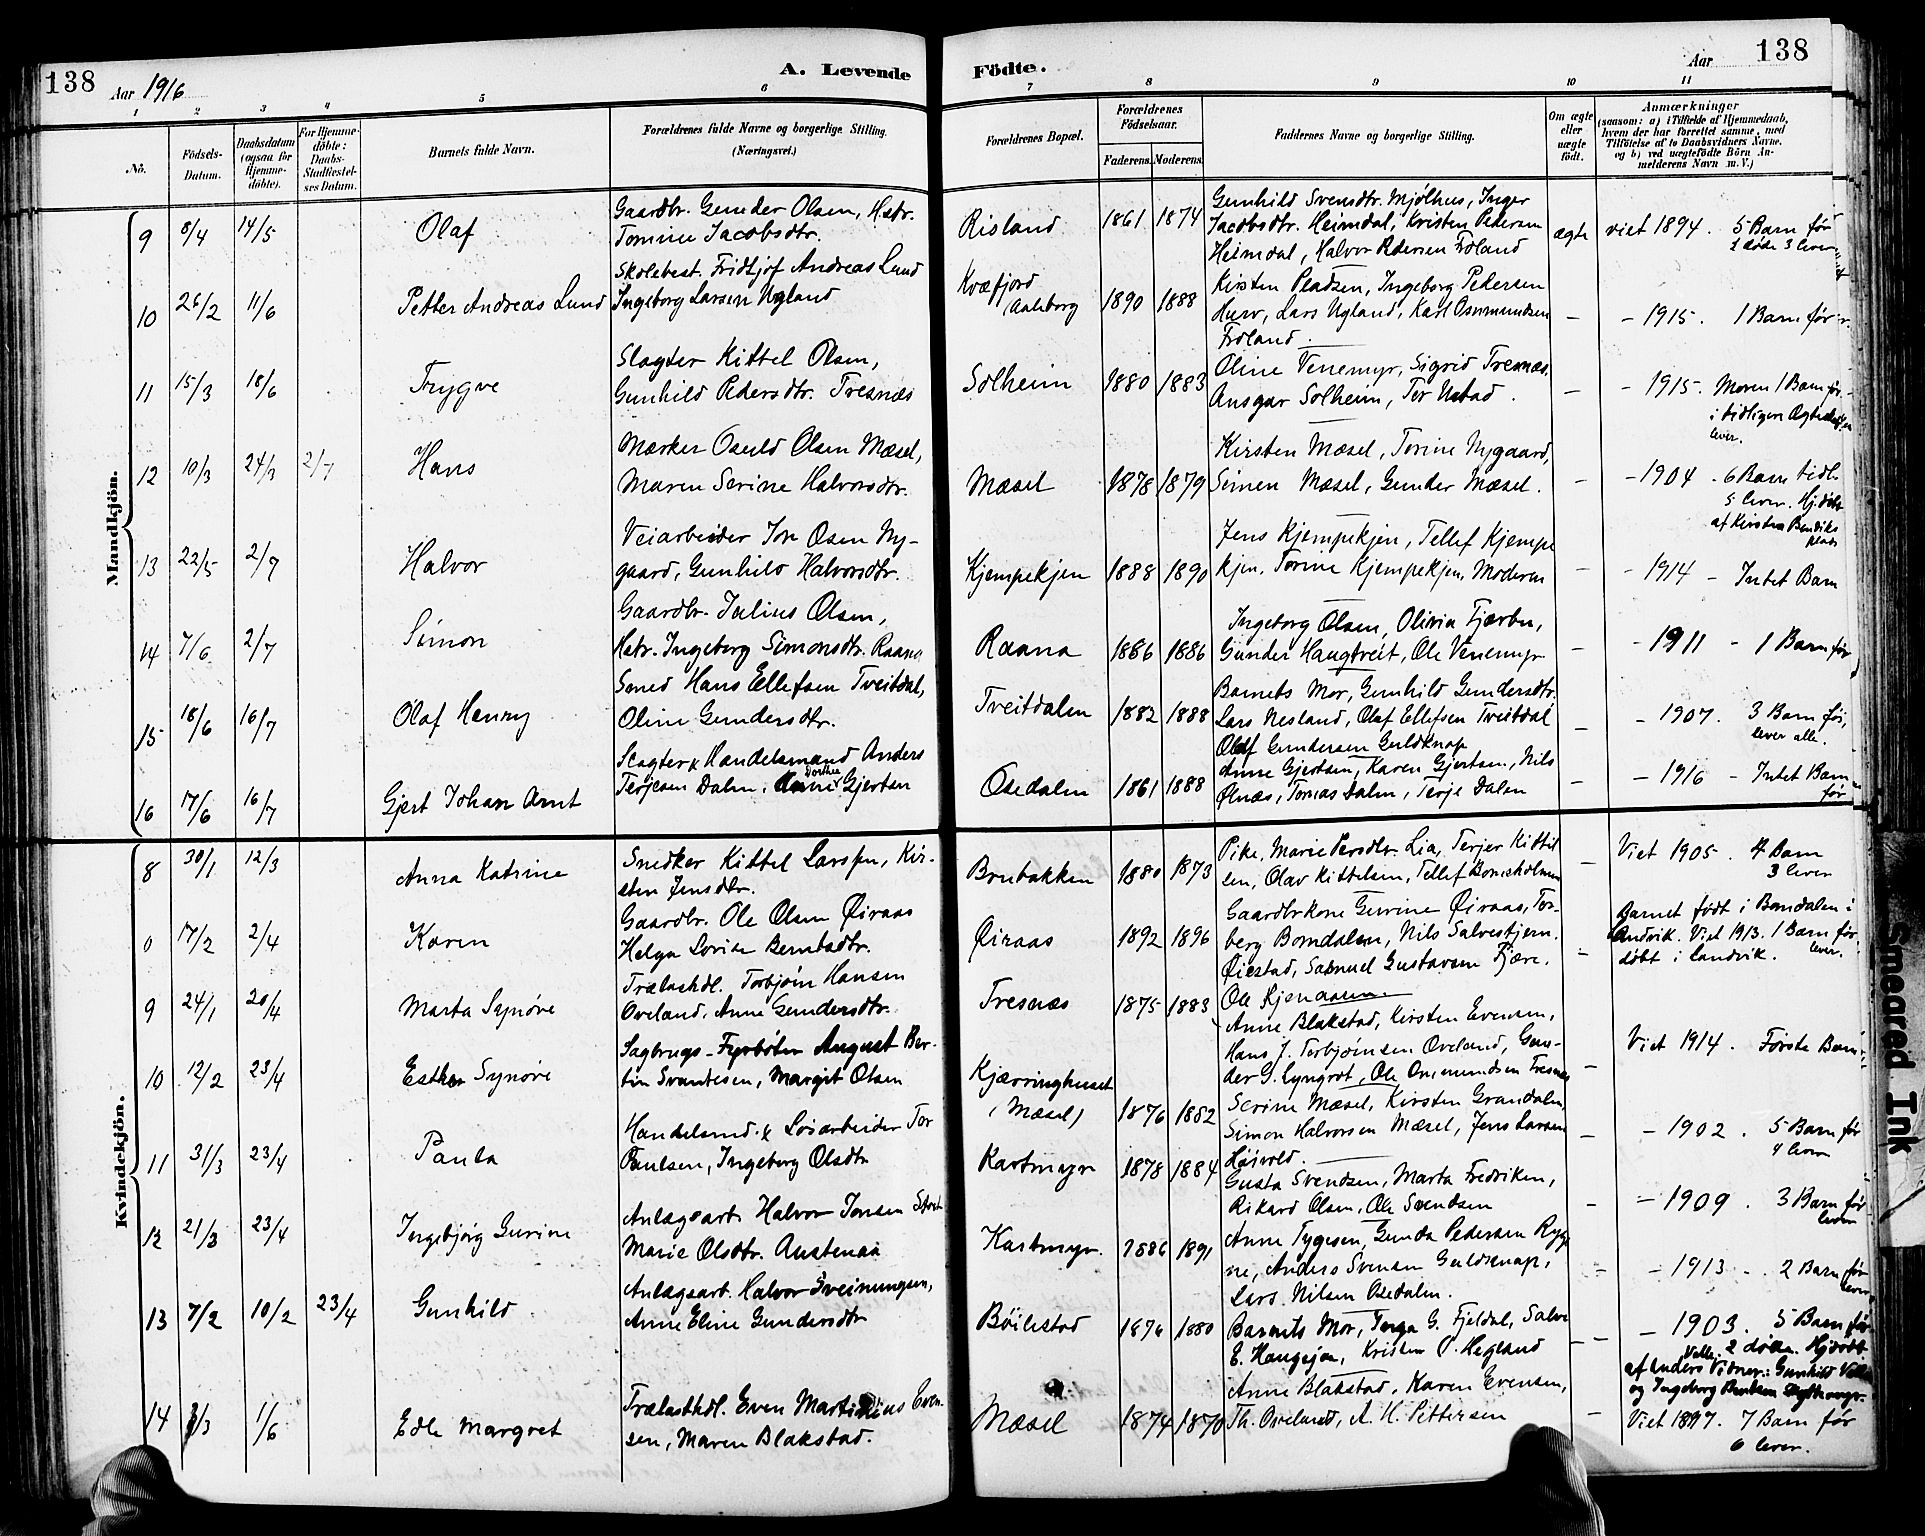 138 Aar 1916 A. Levende Födte. Aar 138
1 2 3 4 5 6 7 8 9 10 11
No.
Födsels-
Datum.
Daabsdatum
(ogsaa for
Hjemme-
döbte).
For Hjemme-
döbte:
Daabs-
Stadfæstel-
ses Datum.
Barnets fulde Navn.
Forældrenes fulde Navne og borgerlige Stilling.
(Næringsvei.)
Forældrenes Bopæl.
Forældrenes
Födselsaar.
Faderens. Moderens.
Faddernes Navne og borgerlige Stilling.
Om ægte
eller
uægte
født.
Anmærkninger
(saasom: a) i Tilfælde af Hjemmedaab,
hvem der har forrettet samme, med
Tilföielse af to Daabsvidners Navne,
og b) ved uægtefödte Börn An-
melderens Navn m. V.)
Mandkjön.
9 8/4 14/5 Olaf
Gaardbr. Gunder Olsen, Hstr.
Tomine Jacobsdtr.
Risland 1861 1874
Gunhild Svendsdtr. Mjølhus, Inger
Jacobsdtr. Heimdal, Kristen Pedersen
Heimdal, Halvor Pedersen Froland
ægte viet 1894. 5 Barn før
2 døde 3 lever
10 26/2 11/6 Petter Andreas Lund
Skolebest. Fridtjof Andreas Lund
Ingeborg Larsen Ugland
Kvæfjord
(Aalsborg 1890 1888
Kirsten Pladsen, Ingeborg Pedersen
Hurv, Lars Ugland, Karl Osmundsen
Froland.
– – 1915. 1 Barn før
11 15/3 18/6 Trygve
Slagter Kittel Olsen,
Gunhild Pedersdtr. Tresnæs
Solheim 1880 1883
Oline Venemyr, Sigrid Tresnæs.
Ansgar Solheim, Tor Ustad.
– – 1915. Moren 1 Barn før
i tidligere Ægteskab
lever.
12 10/3 24/3 2/7 Hans
Mærker Osuld Olsen Mæsel,
Maren Serine Halvorsdtr.
Mæsel 1878 1879
Kirsten Mæsel, Torine Nygaard,
Simen Mæsel, Gunder Mæsel.
– – 1904. 6 Barn tidl.
5 lever. Hj.døbt
af Kirsten Bendiks
plads
13 22/5 2/7 Halvor
Veiarbeider Jon Osen Ny-
gaard, Gunhild Halvorsdtr.
Kjempekjen 1888 1890
Jens Kjempekjen, Tellef Kjempe
kjen. Torine Kjempekjen, Moderen
– – 1914 – Intet Barn
14 7/6 2/7 Simon
Gaardbr. Julius Olsen,
Hstr. Ingeborg Simonsdtr. Raana
Raana 1886 1886
Ingeborg Olsen, Olivia Fjærbu,
Gunder Haugtveit, Ole Venemyr
– – 1911 – 1 Barn før
15 18/6 16/7 Olaf Henry
Smed Hans Ellefsen Tveitdal,
Oline Gundersdtr.
Tveitdalen 1882 1888
Barnets Mor, Gunhild Gundersdtr.
Lars Nesland, Olaf Ellefsen Tveitdal
Olaf Gundersen Guldknap
– – 1907. 3 Barn før,
lever alle.
16 17/6 16/7 Gjert Johan Arnt
Slagter & Handelsmand Anders
Terjesen Dalen, Anne Dorthea Gjertsen
Osedalen 1861 1888
Anne Gjertsen, Karen Gjertsen, Nils
Ølnæs, Tomas Dalen, Terje Dalen
– – 1916 – Intet Barn
før
Kvindekjön.
8 30/1 12/3 Anna Katrine
Snedker Kittel Larssen, Kir-
sten Jensdtr.
Brubakken 1880 1873
Pike, Marie Persdtr. Lia, Terjer Kittil
sen, Olav Kittelsen, Tellef Bomsholmen
– Viet 1905. 4 Barn
3 lever
0 17/2 2/4 Karen
Gaardbr. Ole Olsen Øiraas
Helga Lovise Berntsdtr.
Øiraas 1892 1896
Gaardbrkone Gurine Øiraas, Tor-
berg Bomdalen, Nils Salvestjern.
Øiestad, Samuel Gustavsen Fjære.
– Barnet født i Bomdalen i
Landvik. Viet 1913. 1 Barn før.
døbt i Landvik. lever.
9 24/1 20/4 Marta Synøve
Trælasthdl. Torbjørn Hansen
Oveland, Anne Gundersdtr.
Tresnæs 1875 1883
Ole Kjenaasen.
Anne Blakstad, Kirsten Evensen,
Hans J. Torbjørnsen Oveland, Gun-
der G. Lyngrot, Ole Ommundsen Tresnæs
– Viet 1914. Første Barn
10 12/2 23/4 Esther Synøve
Sagbrugs-Fyrbøter August Ber-
tin Svantesen, Margit Olsen
Kjærringhuset
(Mæsel) 1876 1882
Serine Mæsel, Kirsten Grandalen,
Simon Halvorsen Mæsel, Jens Larsen
Høivold.
– – 1902. 5 Barn før
4 lever
11 31/3 23/4 Paula
Handelsmd. & Løsarbeider Tor
Paulsen, Ingeborg Olsdtr
Kartmyr 1878 1884
Gusta Svendsen, Marta Fredriken,
Rikard Olsen, Ole Svendsen
– – 1909. 3 Barn før
lever
12 21/3 23/4 Ingebjørg Gurine
Anlægsarb. Halvor Jonsen
Marie Olsdtr. Austenaa
Kartmyr. 1886 1891
Anne Tygesen, Gunda Pedersen Ryg
ne, Anders Svensen Guldsknap,
Lars Nilsen Osedalen.
– – 1913. 2 Barn før
lever
13 7/2 10/2 23/4 Gunhild
Anlægsarb. Halvor Sveinungsen,
Anne Eline Gundersdtr
Bøilestad 1876 1880
Barnets Mor, Torga G. Fjeldal, Salve
E. Haugsjøa, Kristen P. Hegland
– – 1903. 5 Barn før
2 døde. Hjdøbt
af Anders Velle. Vidner: Gunhild Velle
og Ingeborg
14 3/3 1/6 Edle Margret
Trælasthdl. Even Martinius Even-
sen, Maren Blakstad.
Mæsel 1874 1870
Anne Blakstad, Karen Evensen,
Th. Oveland, A. H. Pettersen
– Viet 1897. 7 Barn før
6 lever.
Smeared Ink